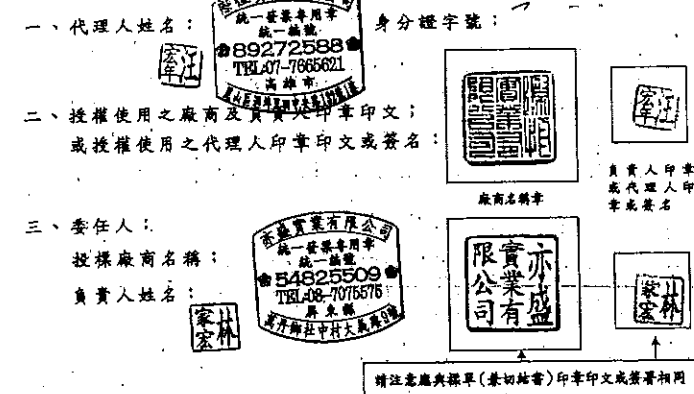 一、代理人姓名：
統一發票專用章
統一編號
89272588
TEL:07-7665621
高雄市
汪宏年
身分證字號：
二、授權使用之廠商及負責人印章印文；
或授權使用之代理人印章印文或簽名：
廠商名稱章
汪宏年
負責人印章
或代理人印
章或簽名
三、委任人：
投標廠商名稱：
負責人姓名：
林家宏
亦盛實業有限公司
統一發票專用章
統一編號
54825509
TEL:08-7075575
屏東縣
萬丹鄉社中村大義路9號
亦盛
實業有
限公司
林家宏
請注意應與標單(兼切結書)印章印文或簽署相同